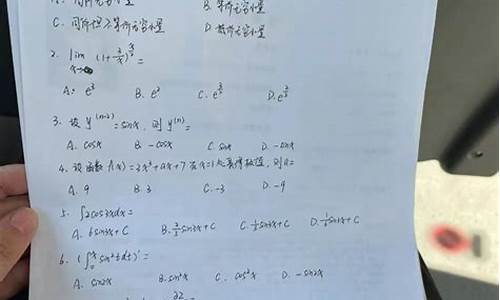 A. 同阶无穷小量 B. 等价无穷小量
C. 同阶但不等价无穷小量 D. 高阶无穷小量
2. lim (1+
A. e³ B. e² C. e D. e
3. 设 y⁽ⁿ⁻²⁾=sinx, 则 y⁽ⁿ⁾=
A. cosx B. -cosx C. sinx D. -sinx
4. 设函数 f(x)=2x³+ax+7 在x=1处取得极值, 则a=
A. 9 B. 3 C. -3 D. -9
5. ∫2cos3xdx=
A. 6sin3x+C B. 2/3sin3x+C C. 1/3sin3x+C D. 1/6sin3x+C
6. (∫₀ˣsin²tdt)'=
A. sin2x B. sin²x C. cos²x D. -sin2x